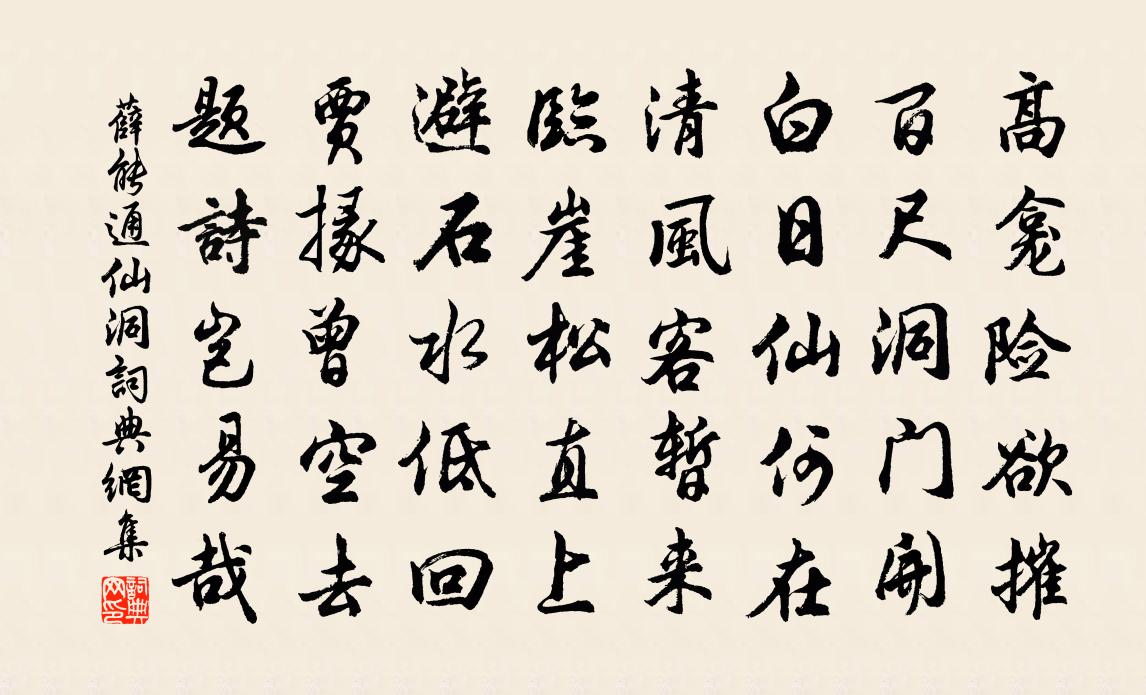 高龛险欲摧
百尺洞门開
白日仙何在
清風客暫来
臨崖松直上
避石水低回
賈掾曾空去
题詩岂易哉
薛能通仙洞詞典網集
詞典網印